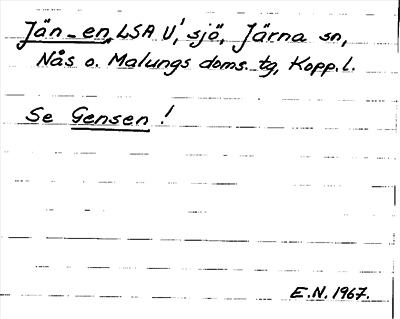 Jän-en, LSA U', sjö, Järna sn,
Nås o. Malungs doms. tg, Kopp. l.
Se Gensen !
E.N. 1967.